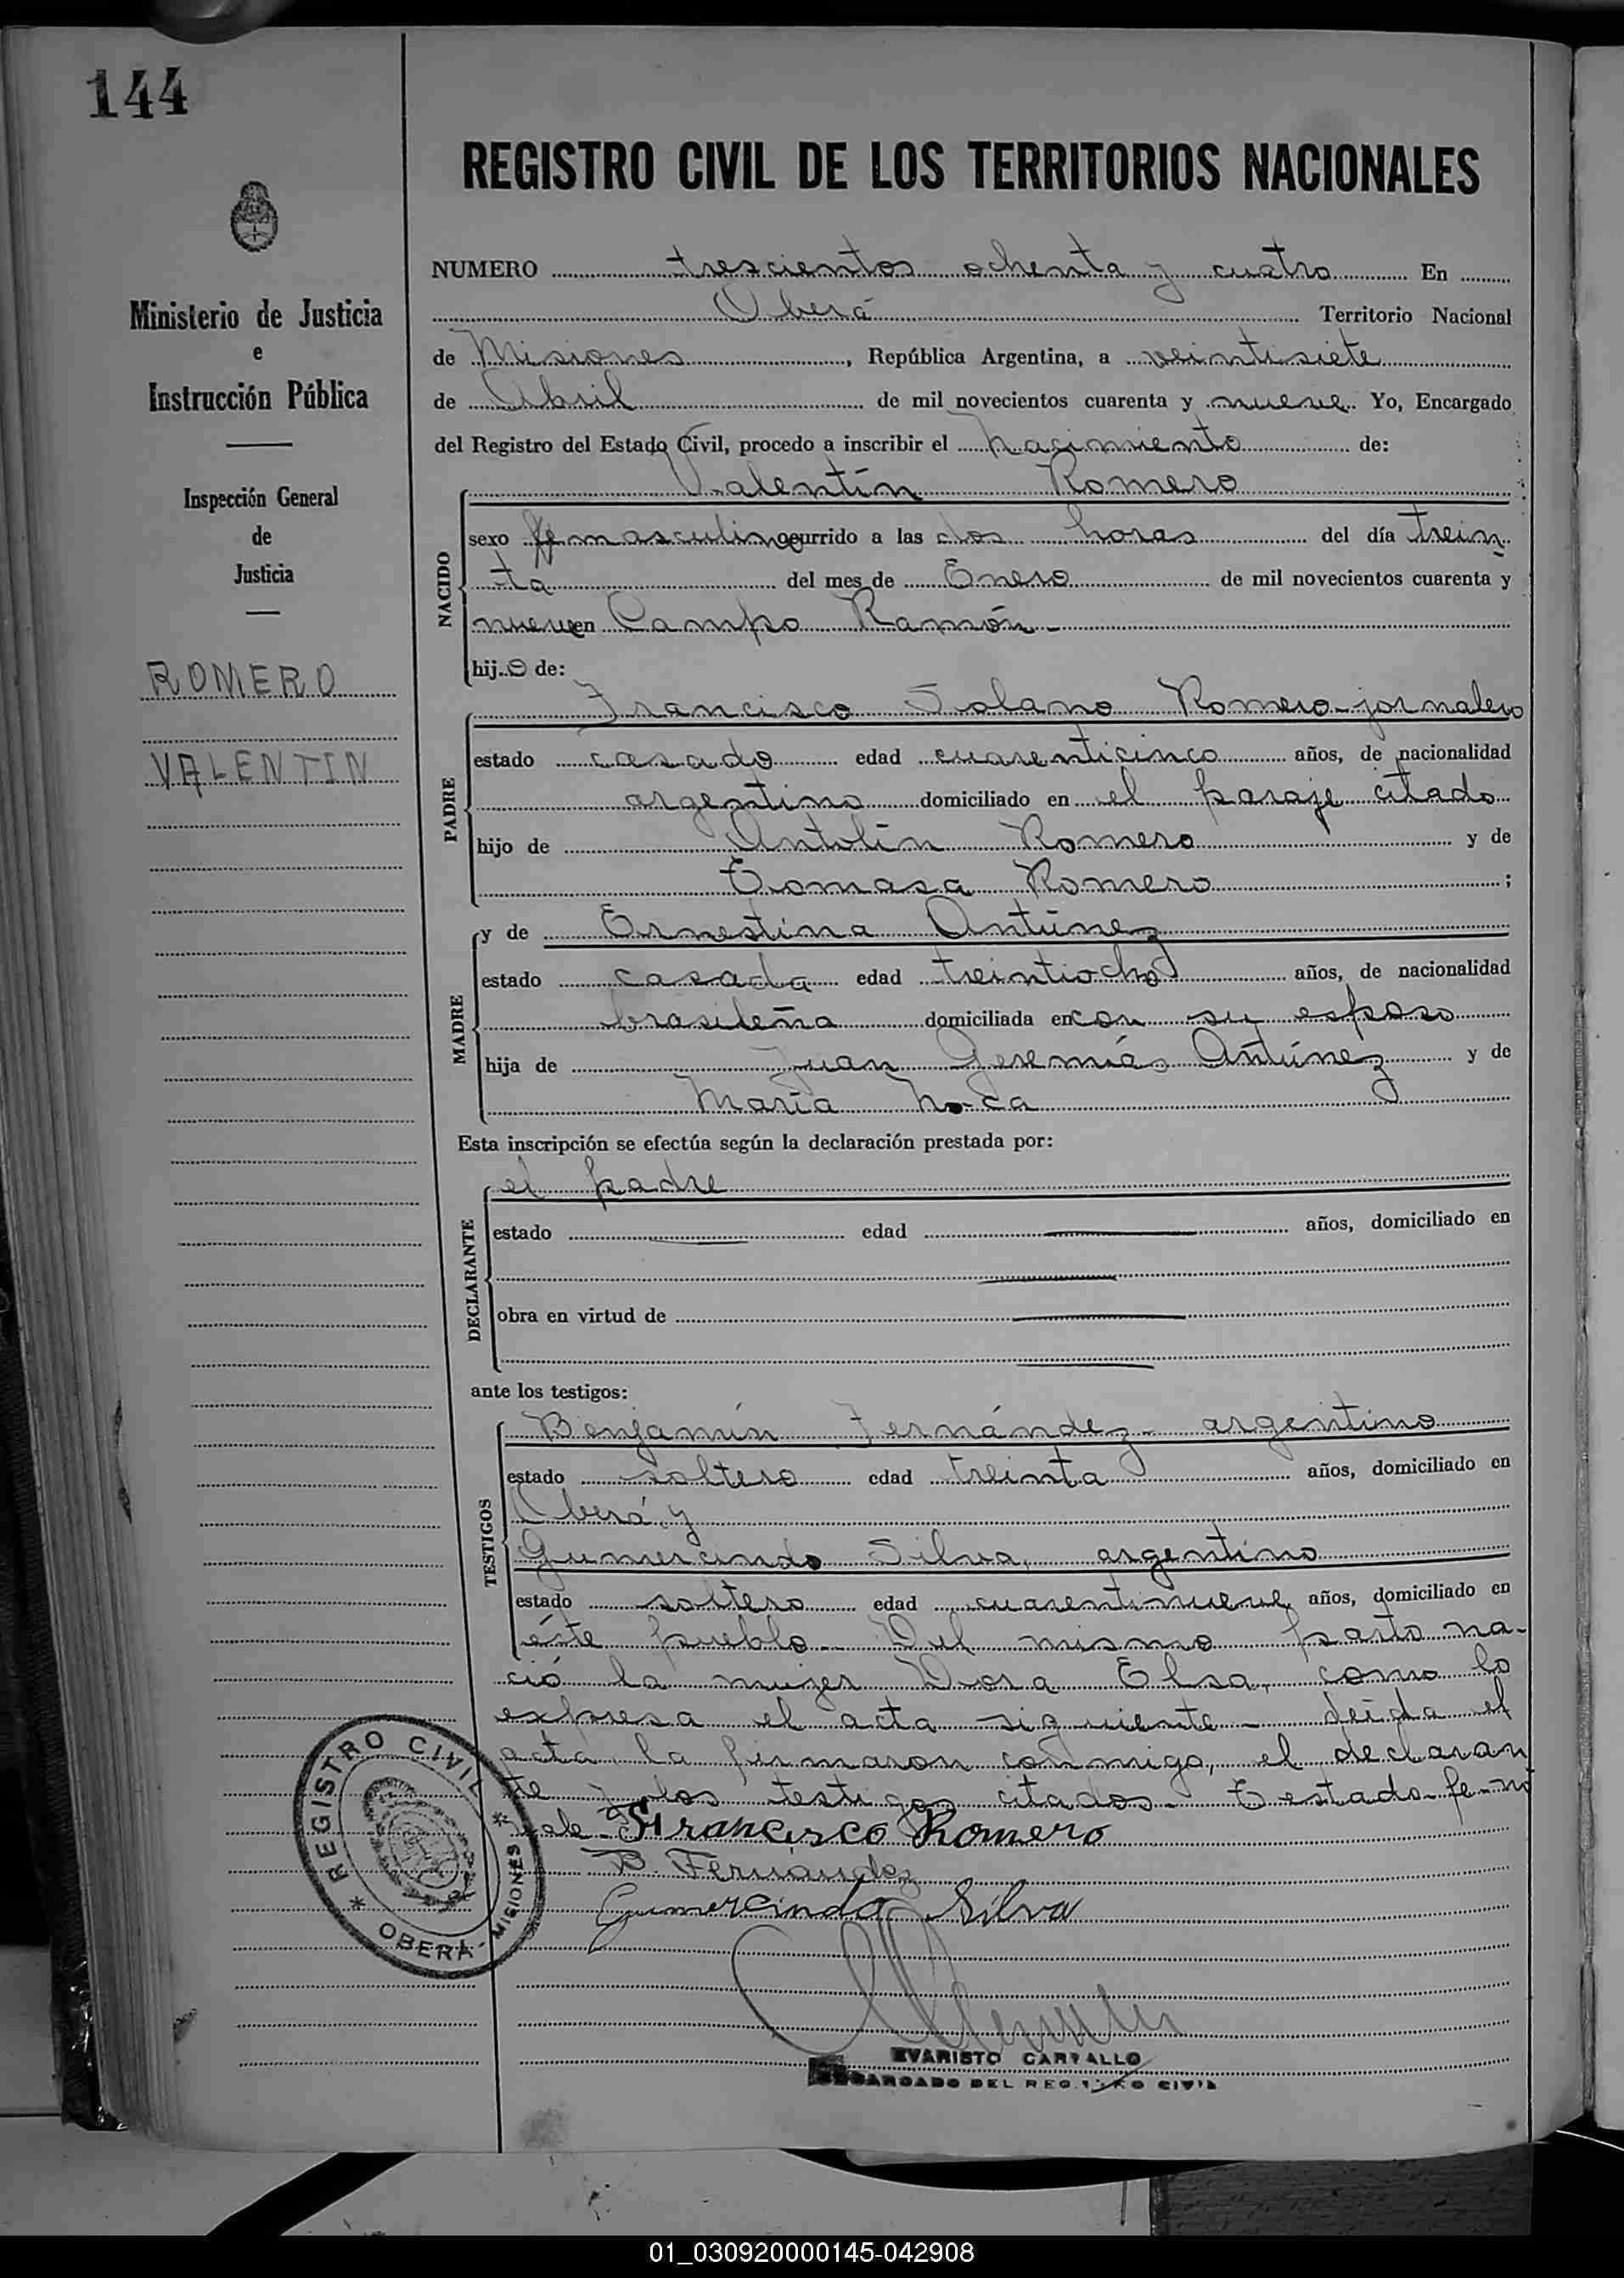 144
REGISTRO CIVIL DE LOS TERRITORIOS NACIONALES
Ministerio de Justicia
e
Instrucción Pública
Inspección General
de
Justicia
ROMERO
VALENTIN
NUMERO trescientos ochenta y cuatro En
Oberá Territorio Nacional
de Misiones, República Argentina, a veintisiete
de Abril de mil novecientos cuarenta y nueve. Yo, Encargado
del Registro del Estado Civil, procedo a inscribir el nacimiento de:
NACIDO
Valentín Romero
sexo fe masculino ocurrido a las dos horas del día trein
ta del mes de Enero de mil novecientos cuarenta y
nueve en Campo Ramón-
hijo de:
PADRE
Francisco Solano Romero-jornalero
estado casado edad cuarenticinco años, de nacionalidad
argentino domiciliado en el paraje citado
hijo de Antolín Romero y de
Tomasa Romero;
MADRE
y de Ernestina Antúnez
estado casada edad treintiocho años, de nacionalidad
brasileña domiciliada en con su esposo
hija de Juan Geremías Antúnez y de
María
Esta inscripción se efectúa según la declaración prestada por:
DECLARANTE
el padre
estado edad años, domiciliado en
obra en virtud de
ante los testigos:
TESTIGOS
Benjamín Fernández- argentino
estado soltero edad treinta años, domiciliado en
Oberá, y
Gumercindo Silva, argentino
estado soltero edad cuarentinueve años, domiciliado en
éste pueblo- Del mismo parto na-
ció la mujer Dora Elsa, como lo
expresa el acta siguiente- Leída el
acta, la firmaron conmigo, el declaran
te y los testigos citados- Testado-fe-no
vale-
Francisco Romero
B. Fernández
Gumercindo Silva
REGISTRO CIVIL
OBERÁ - MISIONES
EVARISTO CARVALLO
ENCARGADO DEL REGISTRO CIVIL
01_030920000145-042908